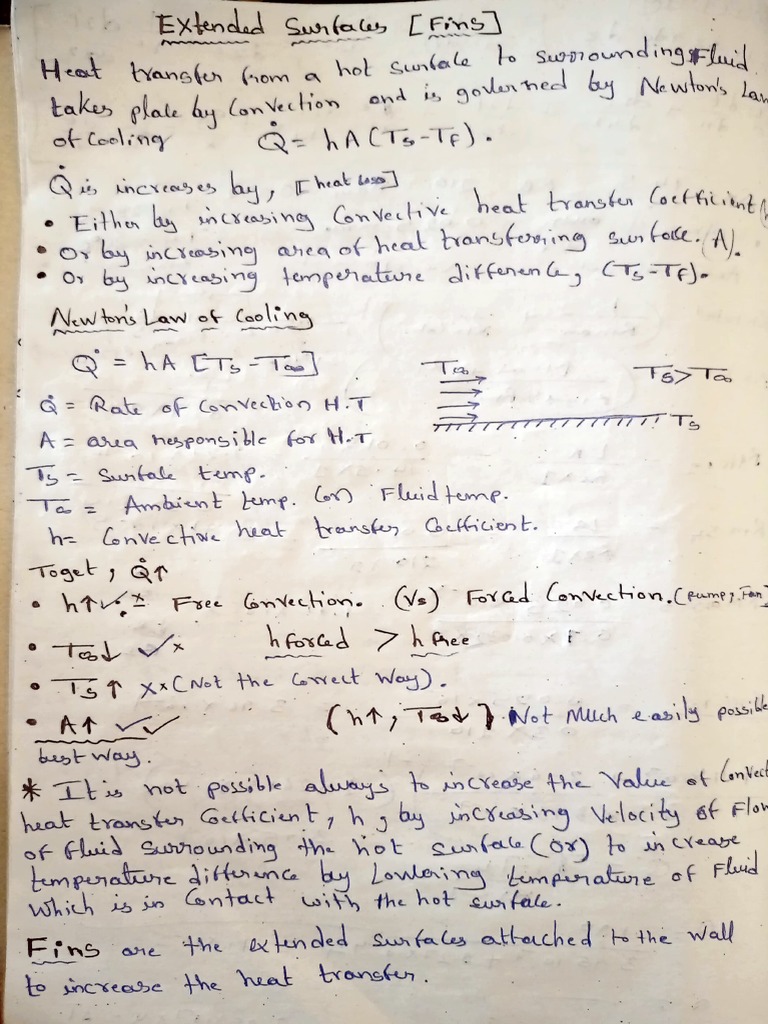 Extended Surfaces [Fins]
Heat transfer from a hot surface to surrounding Fluid
takes place by Convection and is governed by Newton's Law
of Cooling Q̇ = hA (Ts-Tf).
Q̇ is increases by, [heat loss]
• Either by increasing Convective heat transfer Coefficient (h
• Or by increasing area of heat transferring surface. (A).
• Or by increasing temperature difference, (Ts-Tf).
Newton's Law of Cooling
Q̇ = hA [Ts - T∞]
T∞
Ts > T∞
Q̇ = Rate of Convection H.T
Ts
A = area responsible for H.T
Ts = Surface temp.
T∞ = Ambient temp. (or) Fluid temp.
h = Convective heat transfer Coefficient.
Toget, Q̇↑
• h↑ ✓× Free Convection. (Vs) Forced Convection. (pump, Fan)
• T∞↓ ✓× hforced > hfree
• Ts↑ ×× (Not the Correct Way).
• A↑ ✓✓ (h↑, T∞↓) Not Much easily possible
best way.
* It is not possible always to increase the Value of Convect
heat transfer Coefficient, h, by increasing Velocity of Flow
of fluid surrounding the hot surface (or) to increase
temperature difference by Lowering temperature of Fluid
Which is in Contact with the hot surface.
Fins are the extended surfaces attached to the wall
to increase the heat transfer.